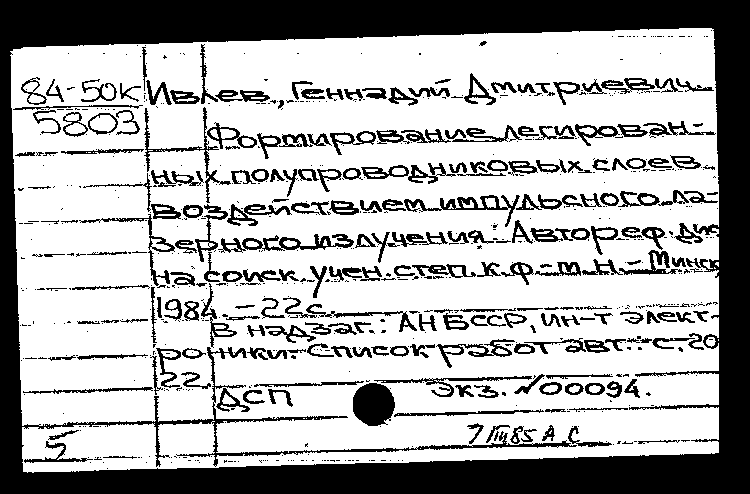 84-50к Ивлев, Геннадий Дмитриевич.
5803 Формирование легирован-
ных полупроводниковых слоев
воздействием импульсного ла-
зерного излучения: Автореф. дис
на соиск. учен. степ. к.ф.-м.н. - Минск,
1984. - 22 с.
В надзаг.: АН БССР, ин-т элект-
роники. Список работ авт.: с. 20
22.
ДСП Экз. №00094.
5